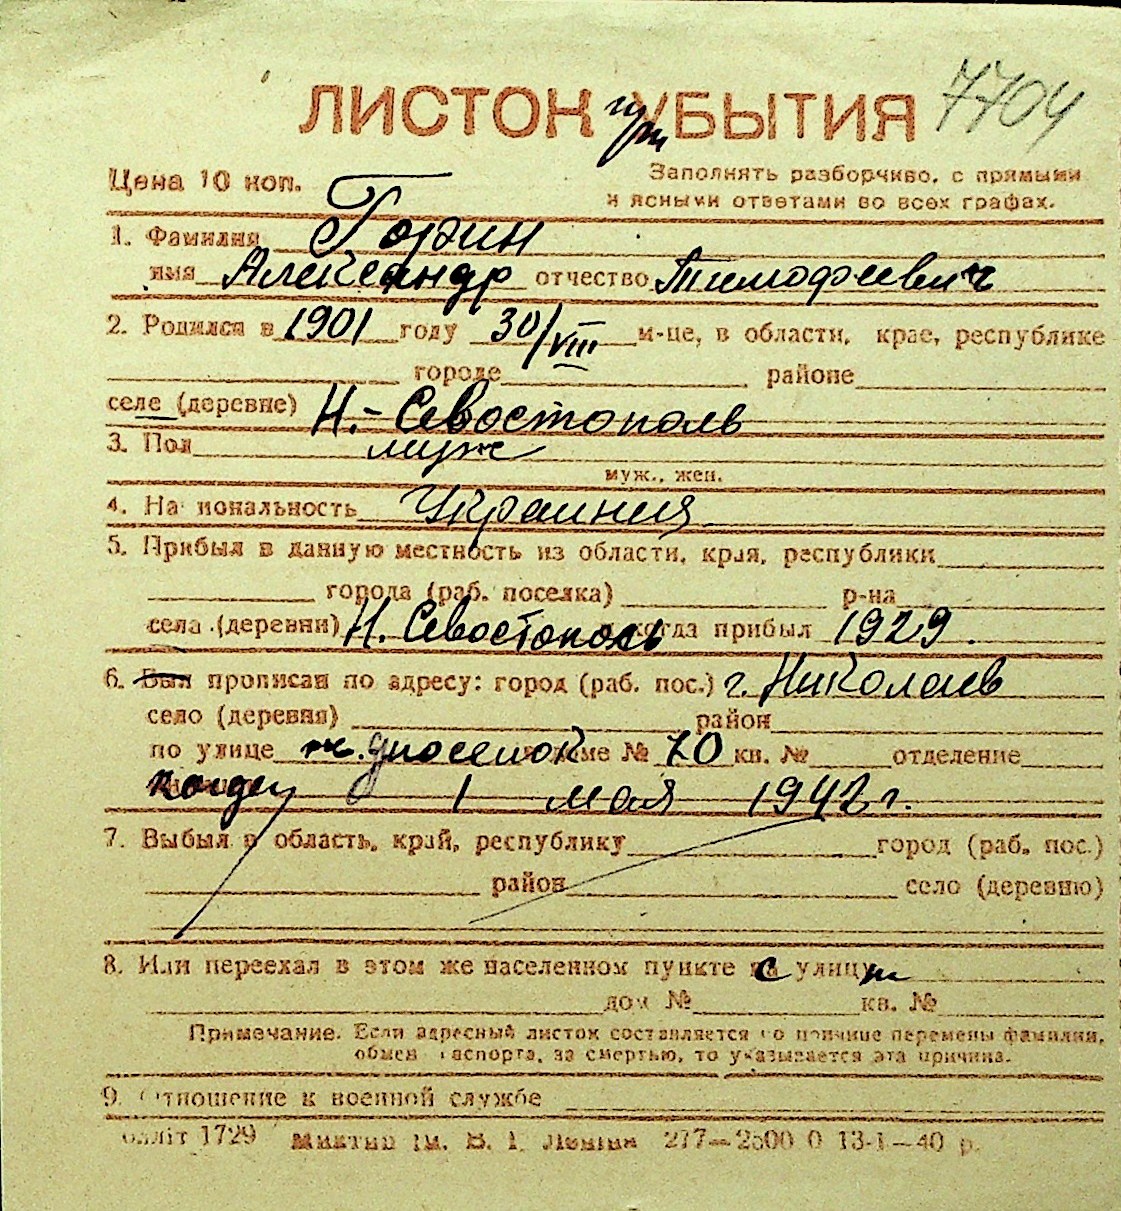 ЛИСТОК УБЫТИЯ 7704
при
Цена 10 коп. Заполнять разборчиво, с прямыми
и ясными ответами во всех графах.
1. Фамилия Горин
имя Александр отчество Тимофеевич
2. Родился в 1901 году 30/VIII м-це, в области, крае, республике
городе районе
селе (деревне) Н.-Севостополь
3. Пол муж
муж., жен.
4. Национальность Украинец
5. Прибыл в данную местность из области, края, республики
города (раб. поселка) р-на
села (деревни) Н. Севостополь и когда прибыл 1929.
6. Был прописан по адресу: город (раб. пос.) г. Николаев
село (деревня) район
по улице доме № 70 кв. № отделение
когда 1 мая 1942 г.
7. Выбыл в область, край, республику город (раб. пос.)
район село (деревню)
8. Или переехал в этом же населенном пункте с улицы
дом № кв. №
Примечание. Если адресный листок составляется по причине перемены фамилии,
обмен паспорта, за смертью, то указывается эта причина.
9. Отношение к военной службе
олліт 1729 Миктип ім. В. І. Леніна 277—2500 0 13-1—40 р.